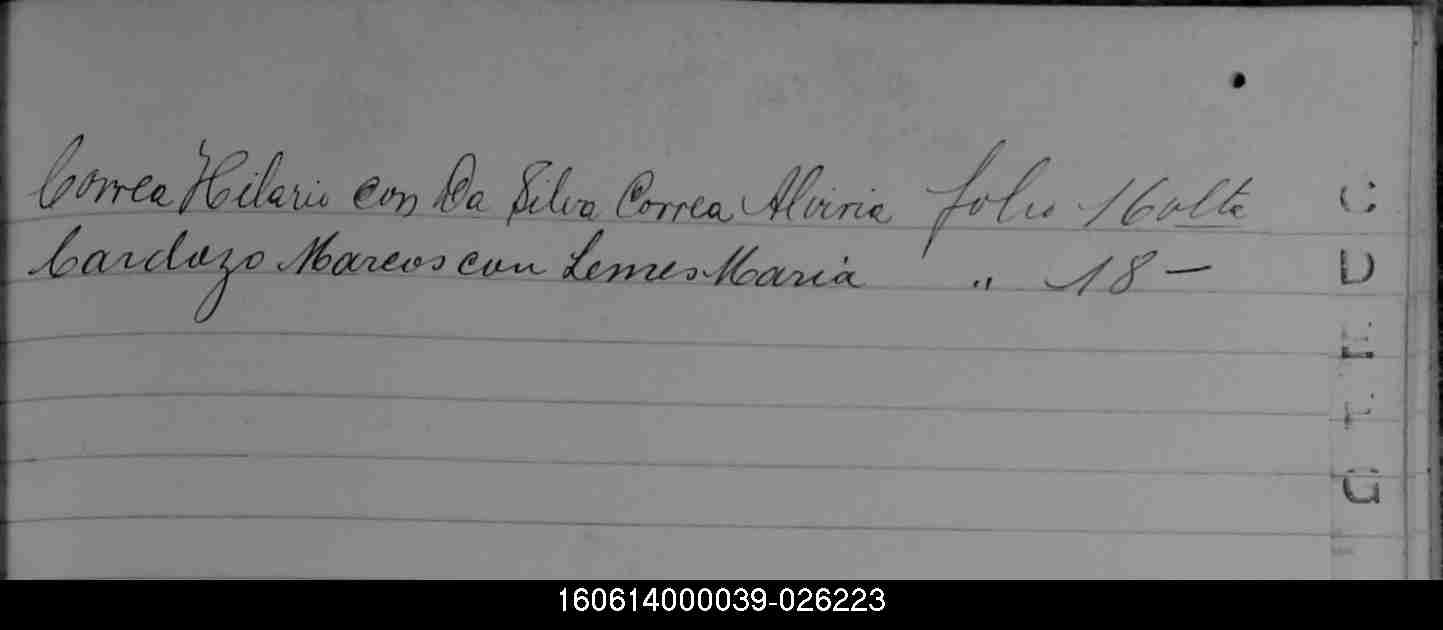 Correa Hilario con Da Silva Correa Alviria folio 16 vlta
Cardozo Marcos con Lemes Maria " 18 —
C
D
E
F
G
160614000039-026223